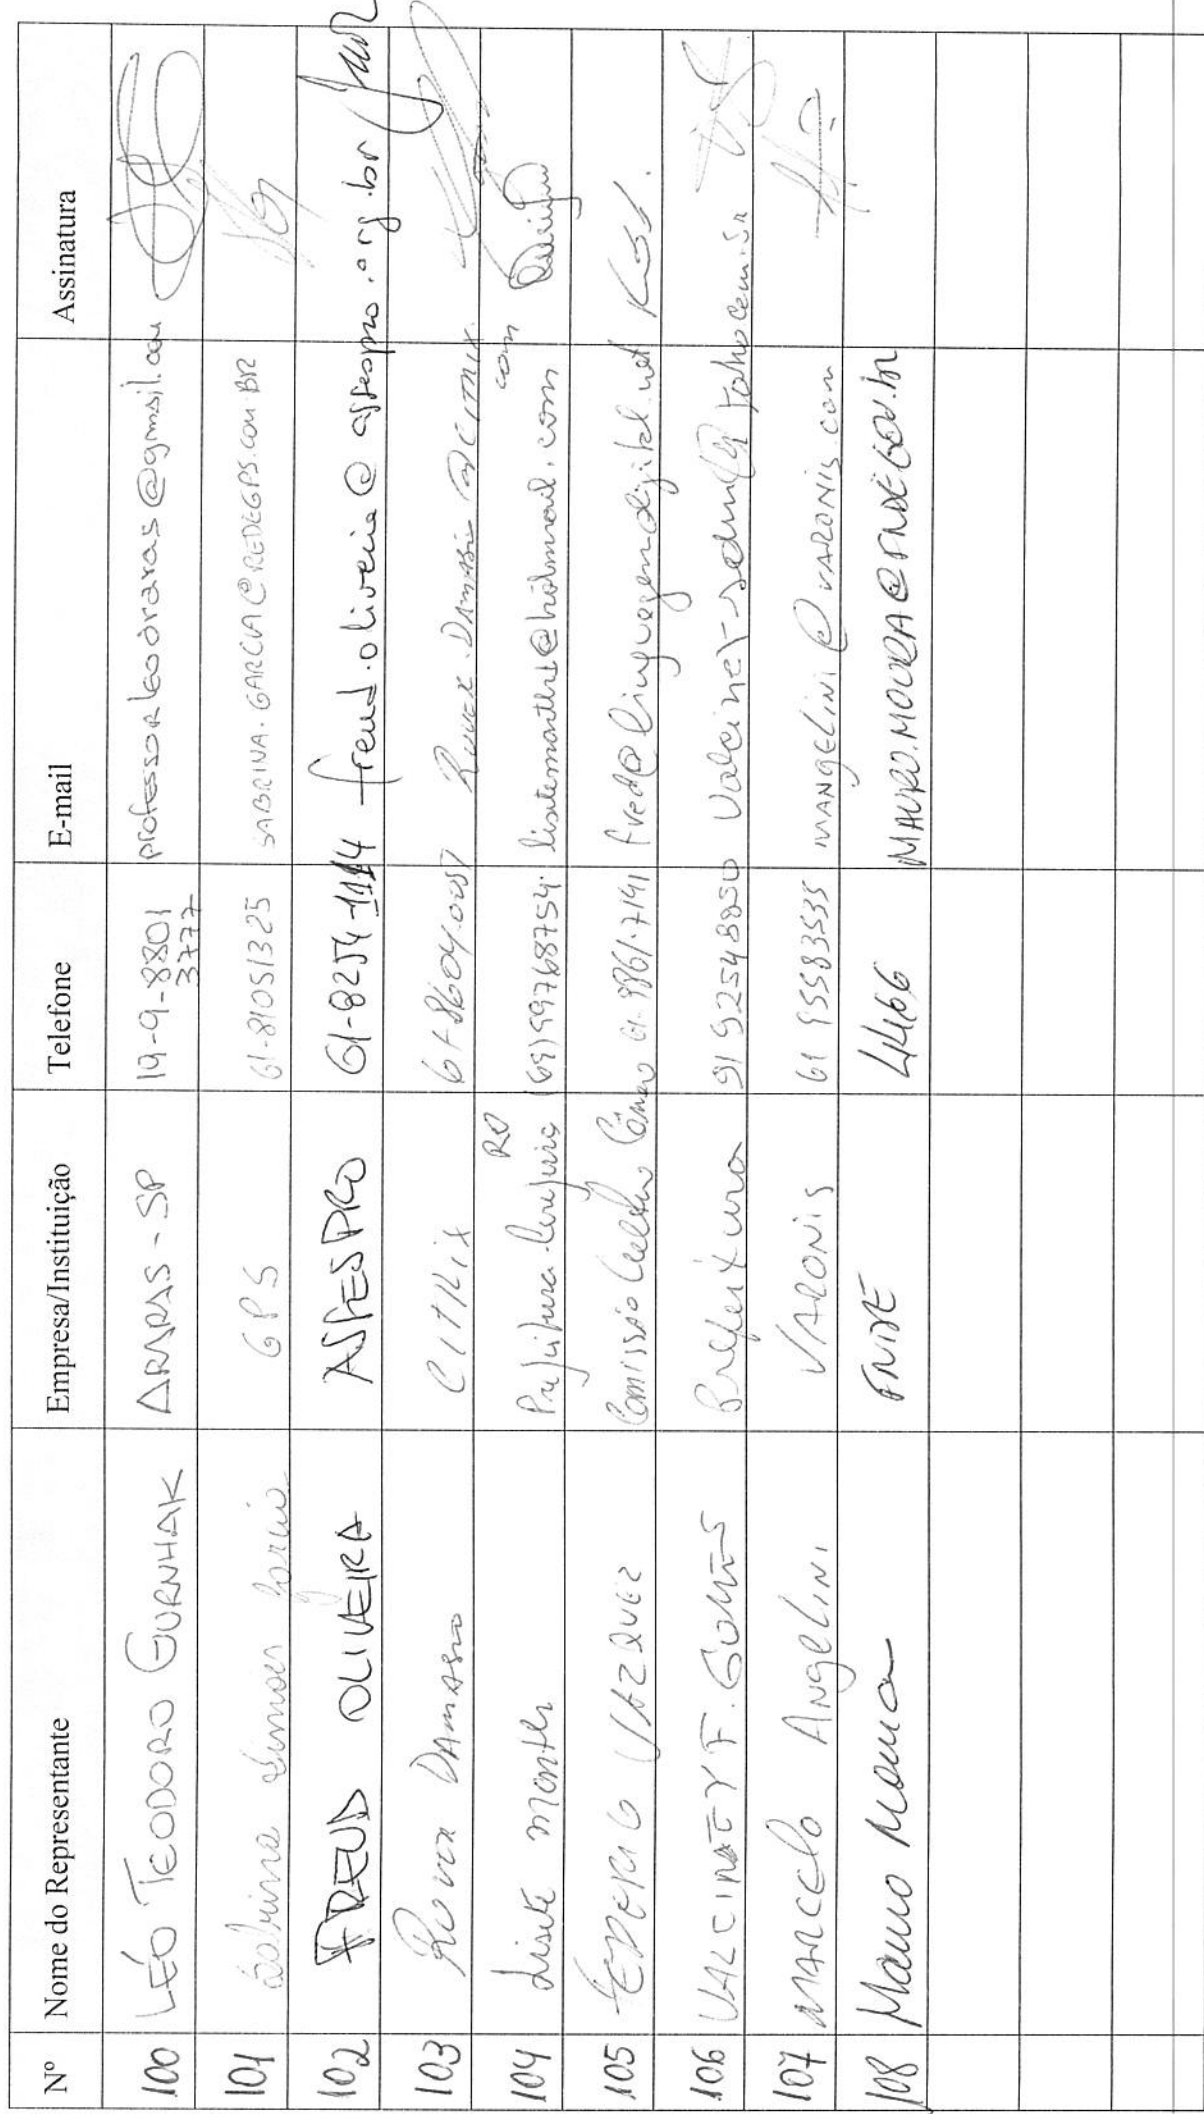 Nº Nome do Representante Empresa/Instituição Telefone E-mail Assinatura
100 LÉO TEODORO GURNHAK ARARAS - SP 19-9-8801 3777 professorleoararas@gmail.com
101 Sabrina Simões Garcia GPS 61-81051325 SABRINA.GARCIA@REDEGPS.COM.BR
102 FREUD OLIVEIRA ASSESPRO 61-8254-1114 freud.oliveira@assespro.org.br
103 DAMASIO CITRIX
104 Lisete Marth Prefeitura Cerejeiras RO (69) 99768754 lisetemarth1@hotmail.com
105 FREDERICO VAZQUEZ Comissão Cultura Câmara 61-9861-7141 fred@linguagemdigital.net
106 VALCINEY F. GOMES Prefeitura 91 92548850
107 MARCELO ANGELINI VARONIS 61 95583535 MANGELINI@VARONIS.COM
108 Mauro Moura FNDE 4466 MAURO.MOURA@FNDE.GOV.br